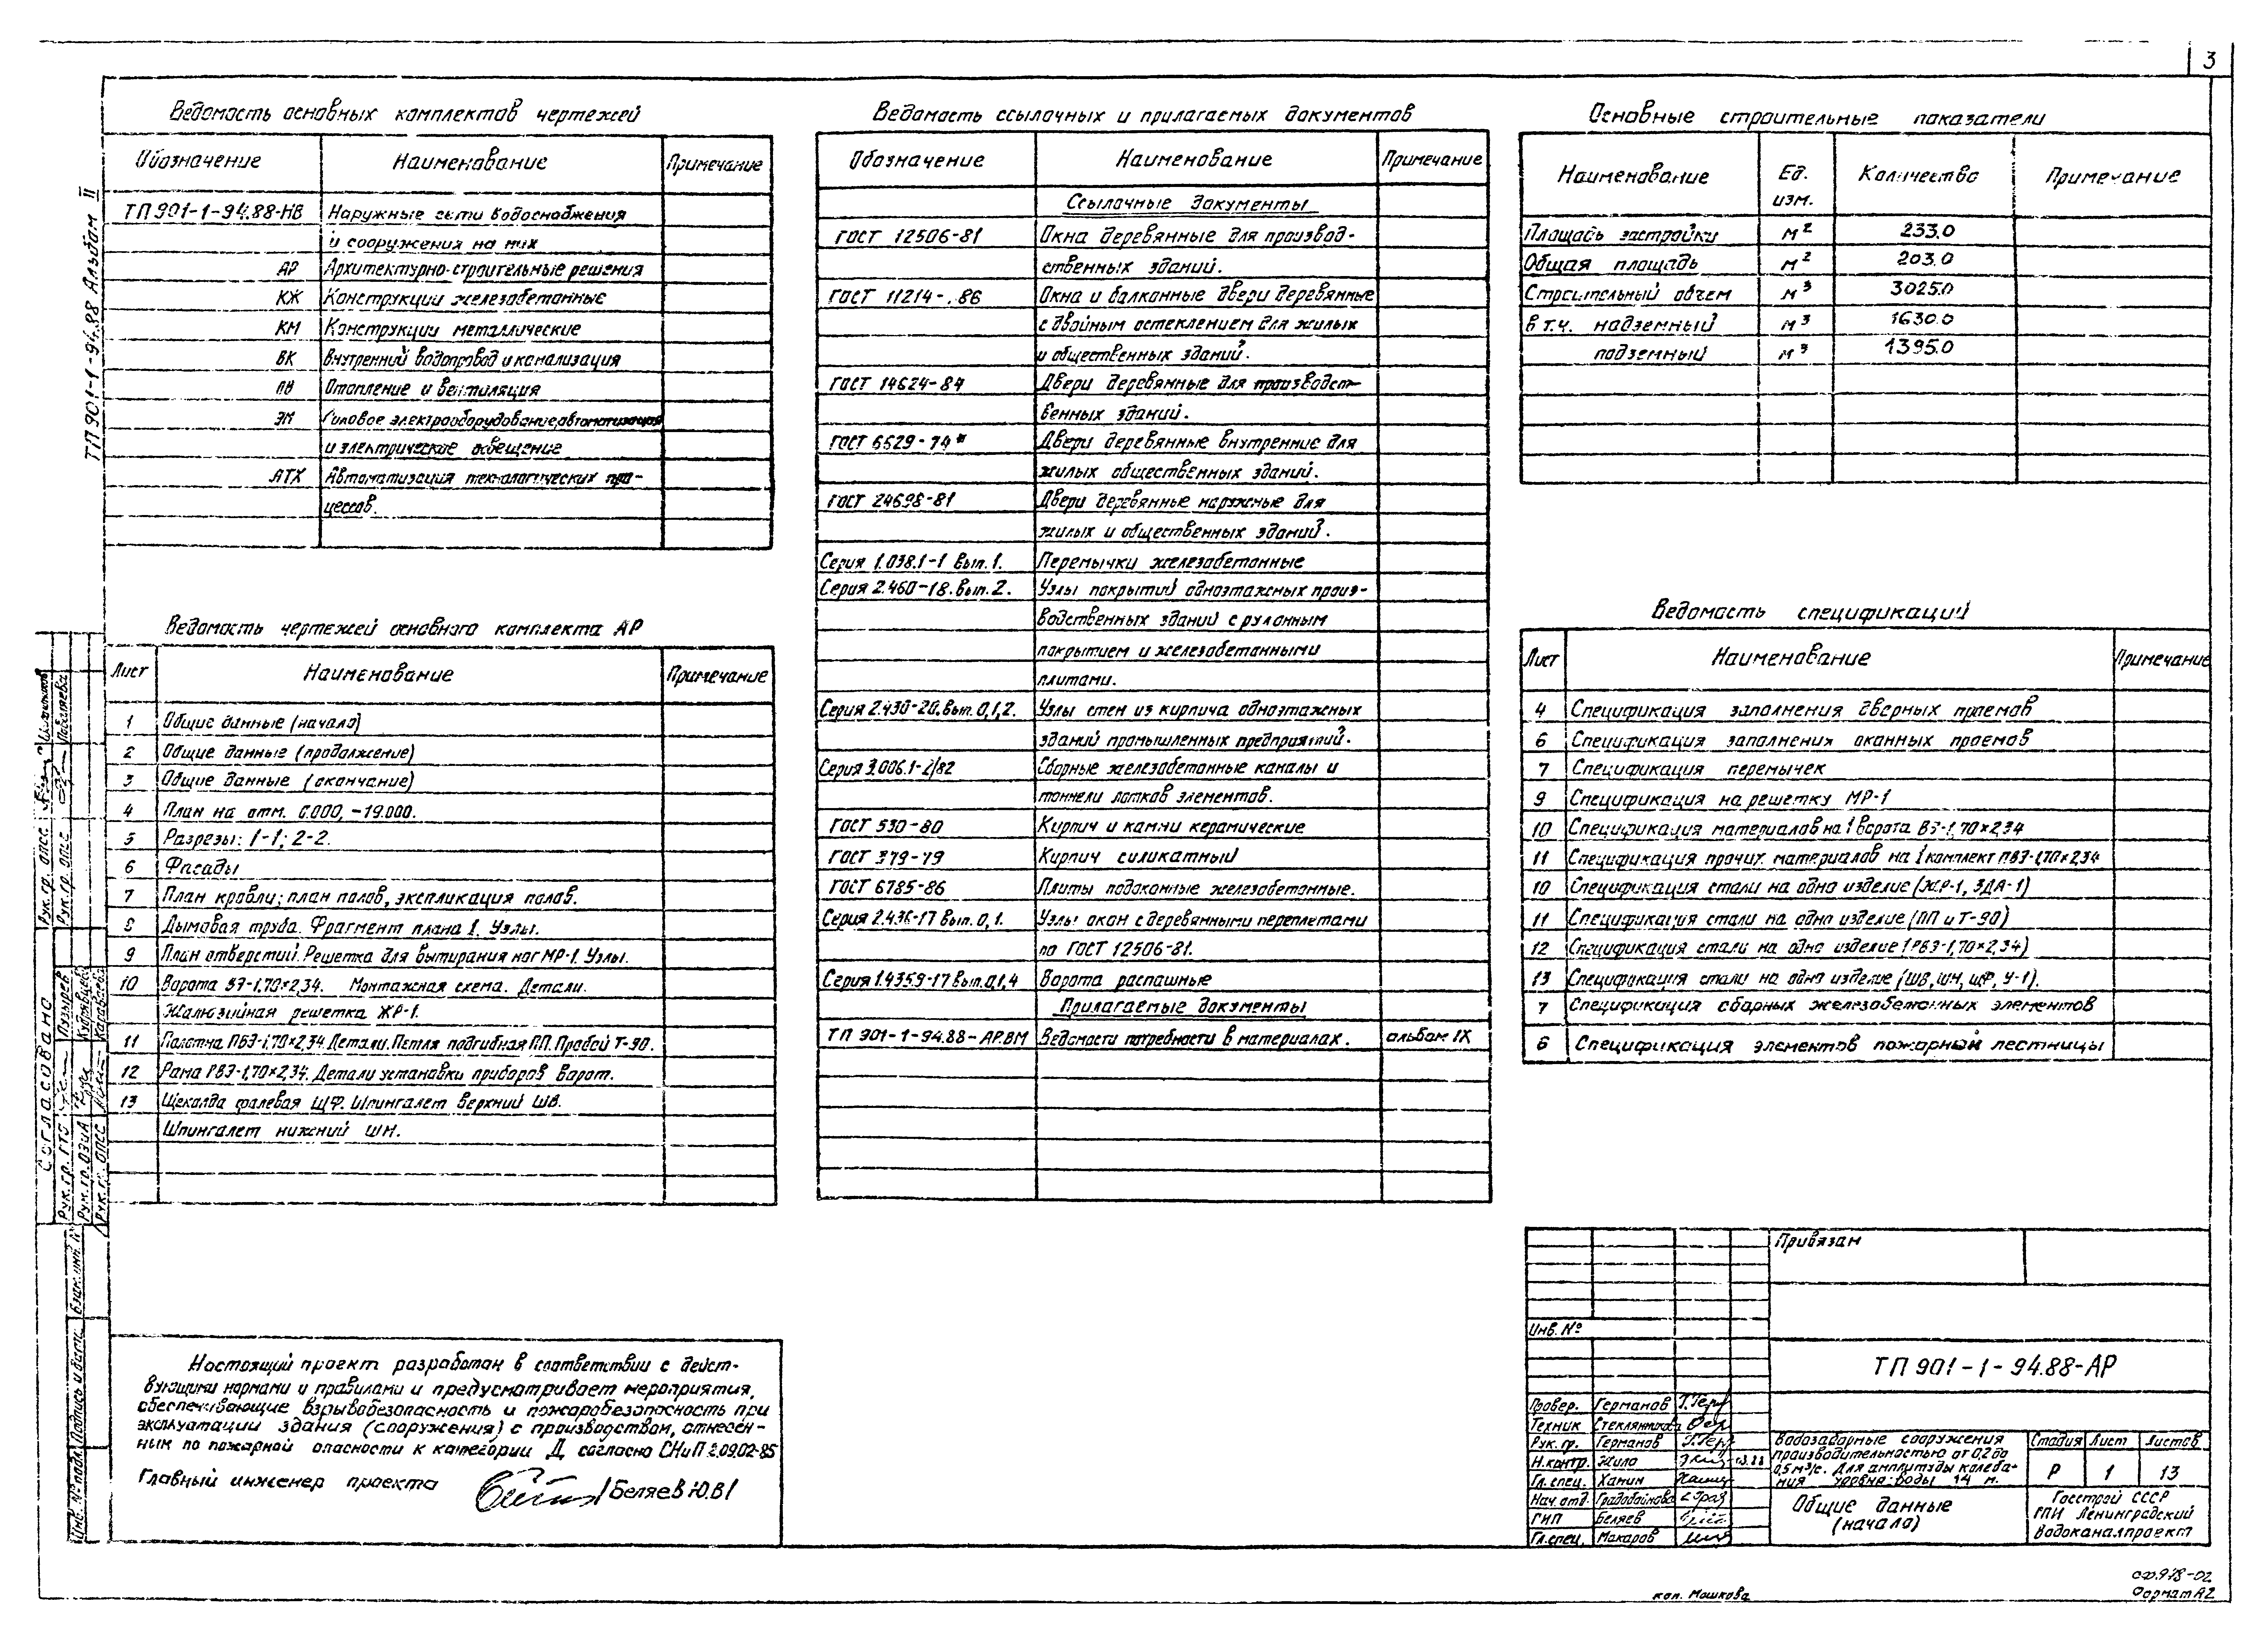 3
ТП 901-1-94.88 Альбом II
Ведомость основных комплектов чертежей
Обозначение Наименование Примечание
ТП 901-1-94.88-НВ Наружные сети водоснабжения
и сооружения на них
АР Архитектурно-строительные решения
КЖ Конструкции железобетонные
КМ Конструкции металлические
ВК Внутренний водопровод и канализация
ОВ Отопление и вентиляция
ЭМ Силовое электрооборудование, автоматизация
и электрическое освещение
АТХ Автоматизация технологических про-
цессов.
Ведомость чертежей основного комплекта АР
Лист Наименование Примечание
1 Общие данные (начало)
2 Общие данные (продолжение)
3 Общие данные (окончание)
4 План на отм. 0.000, -19.000.
5 Разрезы: 1-1; 2-2.
6 Фасады
7 План кровли; план полов, экспликация полов.
8 Дымовая труба. Фрагмент плана 1. Узлы.
9 План отверстий. Решетка для вытирания ног МР-1. Узлы.
10 Ворота ВЭ-1,70×2,34. Монтажная схема. Детали.
Жалюзийная решетка ЖР-1.
11 Полотна ПВЭ-1,70×2,34. Детали. Петля подгибная ПП. Пробой Т-90.
12 Рама РВЭ-1,70×2,34. Детали установки приборов ворот.
13 Щеколда фалевая ЩФ. Шпингалет верхний ШВ.
Шпингалет нижний ШН.
Ведомость ссылочных и прилагаемых документов
Обозначение Наименование Примечание
Ссылочные документы
ГОСТ 12506-81 Окна деревянные для производ-
ственных зданий.
ГОСТ 11214-86 Окна и балконные двери деревянные
с двойным остеклением для жилых
и общественных зданий.
ГОСТ 14624-84 Двери деревянные для производст-
венных зданий.
ГОСТ 6629-74* Двери деревянные внутренние для
жилых общественных зданий.
ГОСТ 24698-81 Двери деревянные наружные для
жилых и общественных зданий.
Серия 1.038.1-1 Вып. 1. Перемычки железобетонные
Серия 2.460-18. Вып. 2. Узлы покрытий одноэтажных произ-
водственных зданий с рулонным
покрытием и железобетонными
плитами.
Серия 2.430-20. Вып. 0,1,2. Узлы стен из кирпича одноэтажных
зданий промышленных предприятий.
Серия 3.006.1-2/82 Сборные железобетонные каналы и
тоннели лотков элементов.
ГОСТ 530-80 Кирпич и камни керамические
ГОСТ 379-79 Кирпич силикатный
ГОСТ 6785-86 Плиты подоконные железобетонные.
Серия 2.436-17 Вып. 0,1. Узлы окон с деревянными переплетами
по ГОСТ 12506-81.
Серия 1.435.9-17 Вып. 0,1,4 Ворота распашные
Прилагаемые документы
ТП 901-1-94.88-АР.ВМ Ведомости потребности в материалах. альбом IX
Основные строительные показатели
Наименование Ед. изм. Количество Примечание
Площадь застройки м² 233.0
Общая площадь м² 203.0
Строительный объем м³ 3025.0
в т.ч. надземный м³ 1630.0
подземный м³ 1395.0
Ведомость спецификаций
Лист Наименование Примечание
4 Спецификация заполнения дверных проемов
6 Спецификация заполнения оконных проемов
7 Спецификация перемычек
9 Спецификация на решетку МР-1
10 Спецификация материалов на 1 ворота ВЭ-1,70×2,34
11 Спецификация прочих материалов на 1 комплект ПВЭ-1,70×2,34
10 Спецификация стали на одно изделие (ЖР-1, ЗДА-1)
11 Спецификация стали на одно изделие (ПП и Т-90)
12 Спецификация стали на одно изделие (РВЭ-1,70×2,34)
13 Спецификация стали на одно изделие (ШВ, ШН, ЩФ, У-1).
7 Спецификация сборных железобетонных элементов
6 Спецификация элементов пожарной лестницы
Настоящий проект разработан в соответствии с дейст-
вующими нормами и правилами и предусматривает мероприятия,
обеспечивающие взрывобезопасность и пожаробезопасность при
эксплуатации здания (сооружения) с производством, отнесен-
ным по пожарной опасности к категории Д согласно СНиП 2.09.02-85
Главный инженер проекта /Беляев Ю.В/
Согласовано
Рук. гр. ГТС Пузырев
Рук. гр. ОЗиА Кудрявцев
Рук. гр. ОПСС Караваева
Рук. гр. ОПСС
Рук. гр. ОПСС
Инв. № подл. Подпись и дата Взам. инв. №
Привязан
Инв. №
ТП 901-1-94.88-АР
Провер. Германов
Техник Стеклянникова
Рук. гр. Германов
Н.контр. Жила
Гл. спец. Ханин
Нач. отд. Градобойнова
ГИП Беляев
Гл. спец. Макаров
Водозаборные сооружения
производительностью от 0,2 до
0,5 м³/с. Для амплитуды колеба-
ния уровня воды 14 м.
Стадия Лист Листов
Р 1 13
Общие данные
(начало)
Госстрой СССР
ГПИ Ленинградский
Водоканалпроект
кол. Машкова
Формат А2